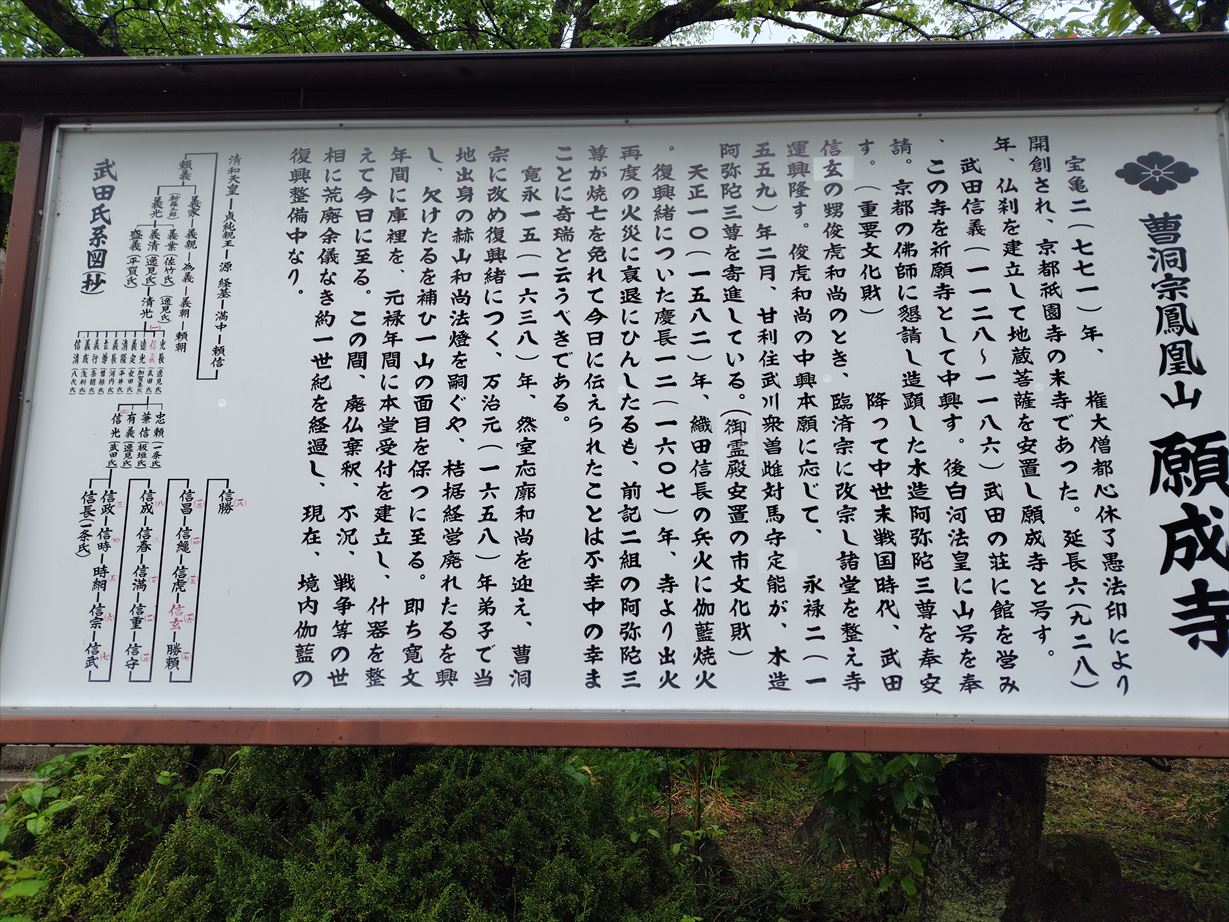 曹洞宗鳳凰山 願成寺
宝亀二(七七一)年、 権大僧都心休了愚法印により
開創され、京都祇園寺の末寺であった。延長六(九二八)
年、仏刹を建立して地蔵菩薩を安置し願成寺と号す。
武田信義(一一二八～一一八六)武田の荘に館を営み
、この寺を祈願寺として中興す。後白河法皇に山号を奉
請。京都の佛師に懇請し造顕した木造阿弥陀三尊を奉安
す。(重要文化財) 降って中世末戦国時代、武田
信玄の甥俊虎和尚のとき、臨済宗に改宗し諸堂を整え寺
運興隆す。俊虎和尚の中興本願に応じて、 永禄二(一
五五九)年二月、甘利住武川衆曽雌対馬守定能が、木造
阿弥陀三尊を寄進している。(御霊殿安置の市文化財)
天正一〇(一五八二)年、織田信長の兵火に伽藍焼火
。復興緒についた慶長一二(一六〇七)年、寺より出火
再度の火災に衰退にひんしたるも、前記二組の阿弥陀三
尊が焼亡を免れて今日に伝えられたことは不幸中の幸ま
ことに奇瑞と云うべきである。
寛永一五(一六三八)年、然室応廓和尚を迎え、曹洞
宗に改め復興緒につく、万治元(一六五八)年弟子で当
地出身の赫山和尚法燈を嗣ぐや、桔据経営廃れたるを興
し、欠けたるを補ひ一山の面目を保つに至る。即ち寛文
年間に庫裡を、元禄年間に本堂受付を建立し、什器を整
えて今日に至る。この間、廃仏棄釈、不況、戦争等の世
相に荒廃余儀なき約一世紀を経過し、現在、境内伽藍の
復興整備中なり。
清和天皇―貞純親王―源 経基―満中―頼信
頼義
義家―義親―為義―義朝―頼朝
(新羅三郎)
義光
義業(佐竹氏)
義清(逸見氏)
盛義(平賀氏)
(逸見氏)
清光
(一)
光長(逸見氏)
信義(武田氏)
遠光(加賀美氏)
義定(安田氏)
清隆(平井氏)
長義(河内氏)
厳尊(曽根氏)
義行(奈胡氏)
義成(浅利氏)
信清(八代氏)
忠頼(一条氏)
兼信(板垣氏)
有義(逸見氏)
信光(武田氏)
信政―信時―時綱―信宗―信武
信長(一条氏)
信成―信春―信満―信重―信守
信昌―信縄―信虎―信玄―勝頼
信勝
武田氏系図(抄)